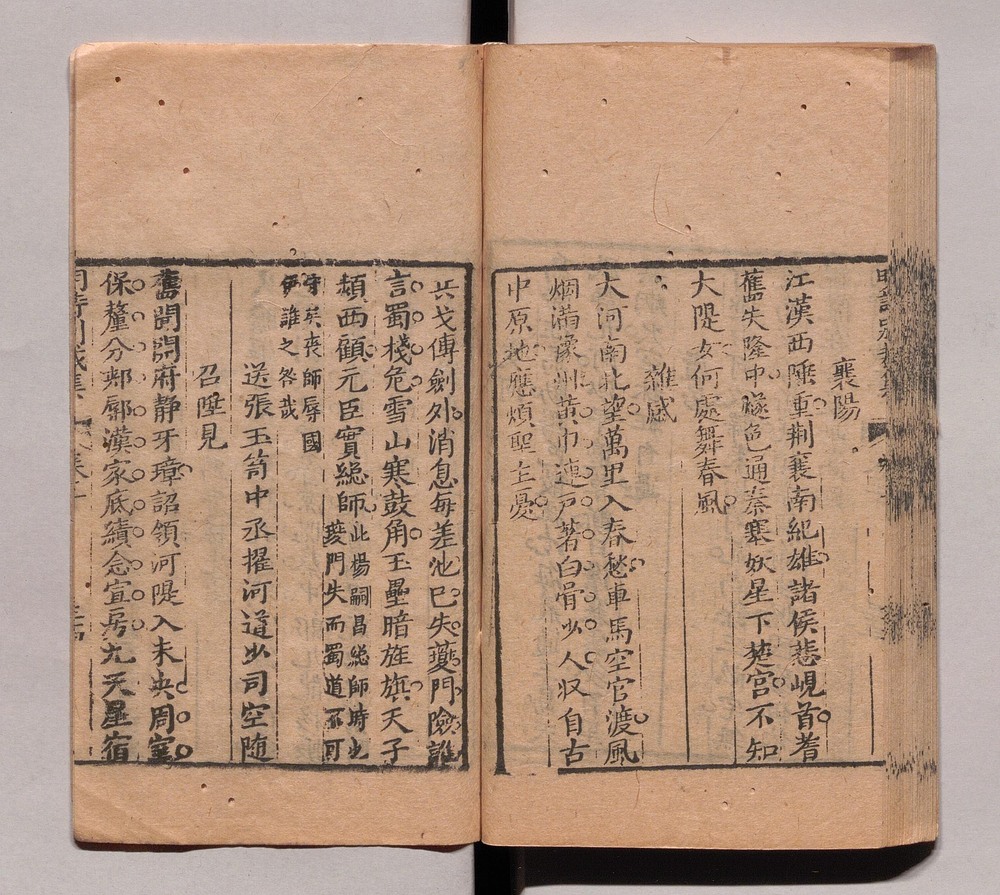 襄陽
江漢西陲重荆襄南紀雄諸侯悲峴首耆
舊失隆中燧色通秦塞妖星下楚宮不知
大隄女何處舞春風
雜感
大河南北望萬里入春愁車馬空官渡風
烟滿豫州黃巾連戸著白骨少人収自古
中原地應煩聖主憂
兵戈傳劍外消息每差池已失夔門險誰
言蜀棧危雪山寒鼓角玉壘暗旌旗天子
頻西顧元臣實總師此楊嗣昌總師時也
夔門失而蜀道不可
守矣喪師辱國
伊誰之咎哉
送張玉笥中丞擢河道少司空随
召陛見
舊開開府静牙璋詔領河隄入未央周室
保釐分郟鄏漢家底績念宣房九天星宿